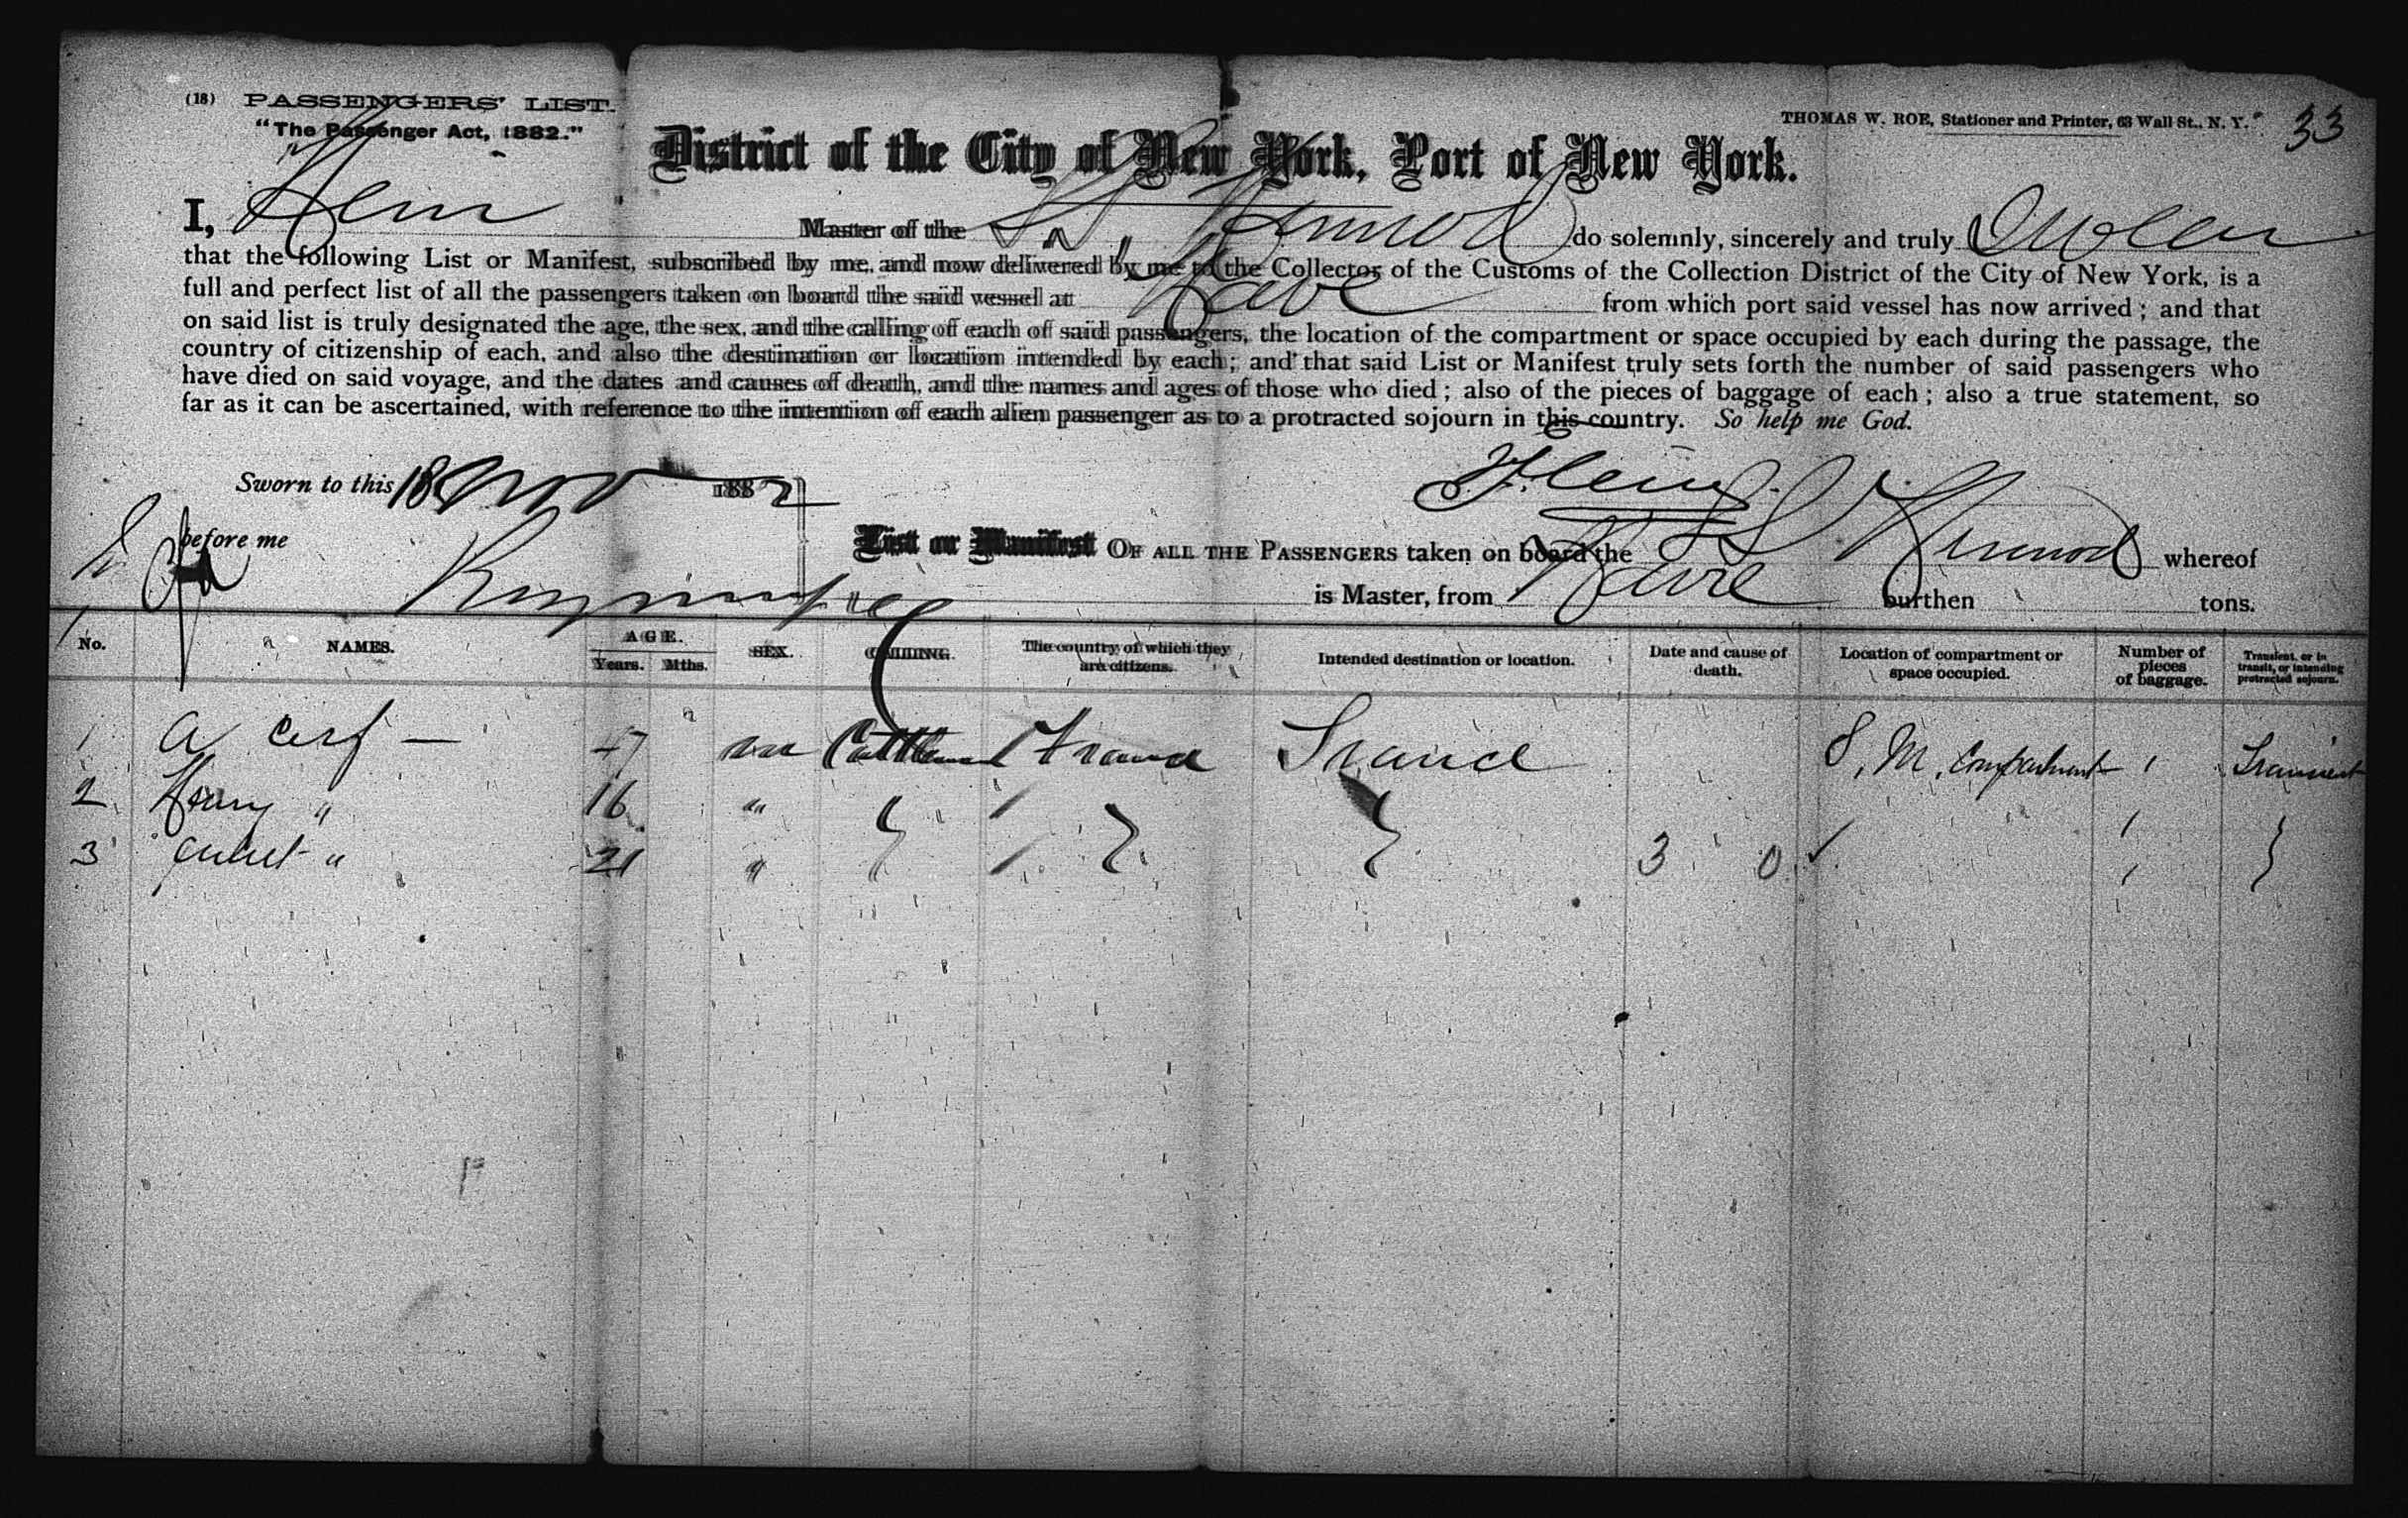 (18) PASSENGERS' LIST.
"The Passenger Act, 1882."
THOMAS W. ROE, Stationer and Printer, 63 Wall St., N. Y.
33
District of the City of New York, Port of New York.
I, Master of the do solemnly, sincerely and truly
that the following List or Manifest, subscribed by me, and now delivered by me to the Collector of the Customs of the Collection District of the City of New York, is a
full and perfect list of all the passengers taken on board the said vessel at Havre from which port said vessel has now arrived; and that
on said list is truly designated the age, the sex, and the calling of each of said passengers, the location of the compartment or space occupied by each during the passage, the
country of citizenship of each, and also the destination or location intended by each; and that said List or Manifest truly sets forth the number of said passengers who
have died on said voyage, and the dates and causes of death, and the names and ages of those who died; also of the pieces of baggage of each; also a true statement, so
far as it can be ascertained, with reference to the intention of each alien passenger as to a protracted sojourn in this country. So help me God.
Sworn to this 18 Nov 1882
before me
List or Manifest OF ALL THE PASSENGERS taken on board the whereof
is Master, from Havre burthen tons.
No. NAMES. AGE. Years. Mths. SEX. CALLING. The country of which they are citizens. Intended destination or location. Date and cause of death. Location of compartment or space occupied. Number of pieces of baggage. Transient, or in transit, or intending protracted sojourn.
1 A Cerf — 47 m Cattleman / France France S, M, Compartment 1 Transient
2 Henry " 16 " / 1
3 " 21 " / 3 0 ✓ 1